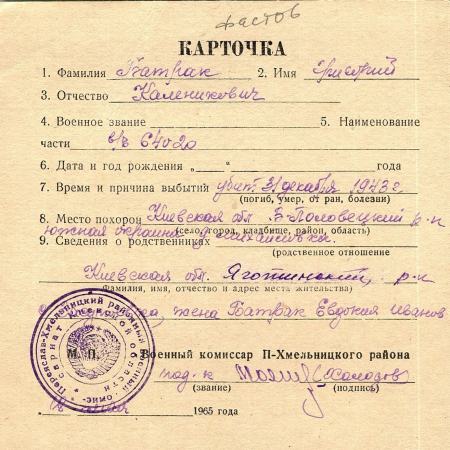 Фастов
КАРТОЧКА
1. Фамилия Батрак 2. Имя Григорий
3. Отчество Каленикович
4. Военное звание 5. Наименование
части в/ч 64020
6. Дата и год рождения „ “ года
7. Время и причина выбытий убит 31 декабря 1943 г.
(погиб, умер, от ран, болезни)
8. Место похорон Киевская обл. В-Половецкий р-н
(село, город, кладбище, район, область)
южная окраина с. Михайловка.
9. Сведения о родственниках
(родственное отношение
Киевская обл. Яготинский р-н
Фамилия, имя, отчество и адрес места жительства)
жена Батрак Евдокия Иванов
Переяслав-Хмельницкий районный военный комиссариат Киевской области
М. П. Военный комиссар П-Хмельницкого района
подп-к (Холодов)
(звание) (подпись)
1965 года